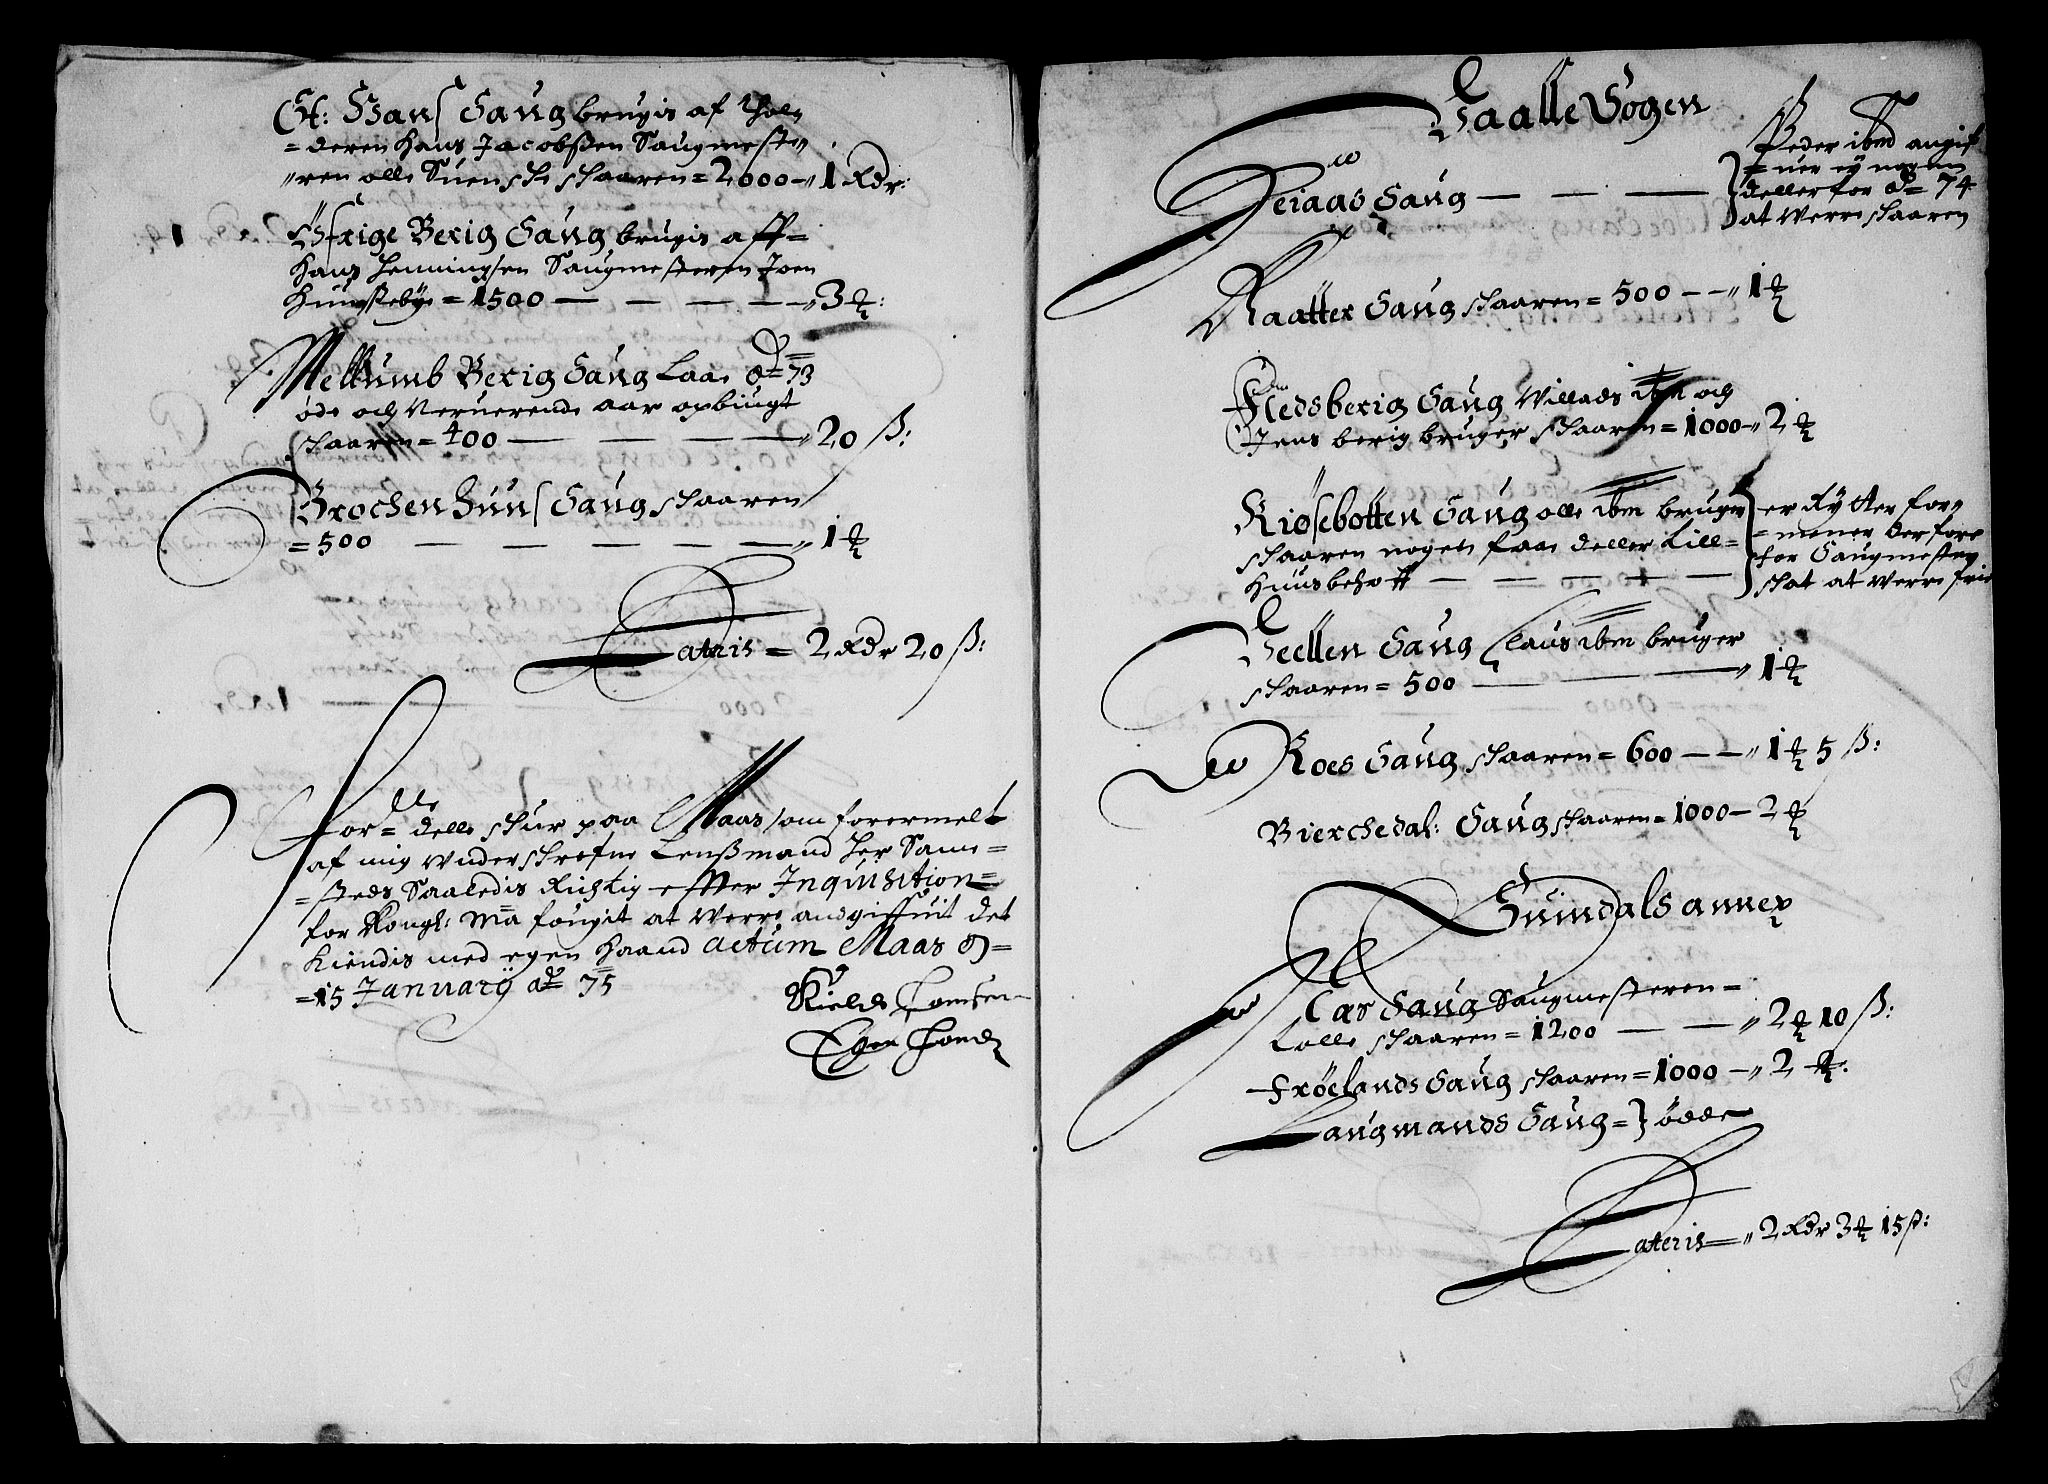 St: Hans Saug brugis af thol=
=deren Hans Jacobsßen Saugmeste=
=ren olle Suenske skaaren = 2000 - 1 Rdr:
Øfrige Berig Saug brugis aff=
Hans Henningsen Saugmesteren Joen
= 1500 — — — — 3 ℔:
Mellumb Berig Saug Laae Ao 73
øde och Veruerende aar opbiugt
skaaren = 400 — — — 20 ß:
Brochenhuus Saug skaaren
= 500 — — — — 1 ℔
Lateris = 2 Rdr 20 ß:
For= delle skur paa Maas som forermelt
af mig Underskrefne Lenßmand her Samme=
=steds Saaledis Richtig effter Inquisition=
for Kongl: Ma fougit at Verre andgiffuit det
Kiendis med egen Haand Actum Maas D=
=15 January Ao 75
Kield Tomsen
Egen Hond
Gaalle Sogen
Seiaas Saug — — —
Peder ibm angif
=uer ey nogen
deller for Ao 74
at Verre skaaren
Raatter Saug skaaren = 500 — 1 ℔
Fledsberig Saug Villads ibm och
Jens berig bruger skaaren = 1000 - 2 ℔
Kiøsebøtten Saug olle ibm bruger
skaaren nogen faae deller till=
Huusbehoff — — — —
er Rytter for=
=mener derfore
for Saugmester
skat at Verre frie
Geellen Saug Claus ibm bruger
skaaren = 500 — — — 1 ℔
Roes Saug skaaren = 600 — 1 ℔ 5 ß:
Bierchedal: Saug skaaren = 1000 - 2 ℔
Suindals annex
Aas Saug Saugmesteren =
Lolle skaaren = 1200 — — 2 ℔ 10 ß:
Frøelands Saug skaaren = 1000 - 2 ℔:
Laugmands Saug = } ødde
Lateris = 2 Rdr 3 ℔ 15 ß: